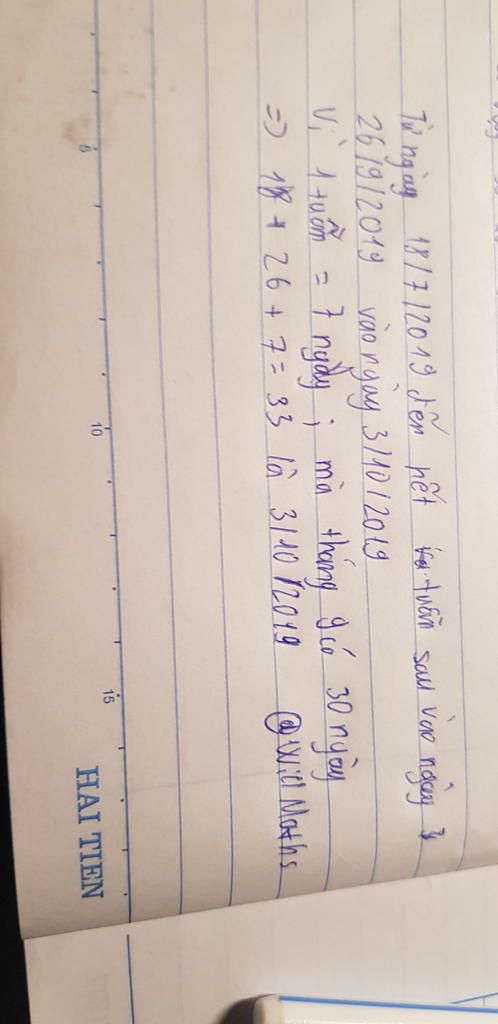 Từ ngày 18/7/2019 đến hết tuần sau vào ngày
26/9/2019 vào ngày 3/10/2019
Vì 1 tuần = 7 ngày ; mà tháng 9 có 30 ngày
=> 18 + 26 + 7 = 33 là 3/10/2019 @Will Maths
5 10 15
HAI TIEN